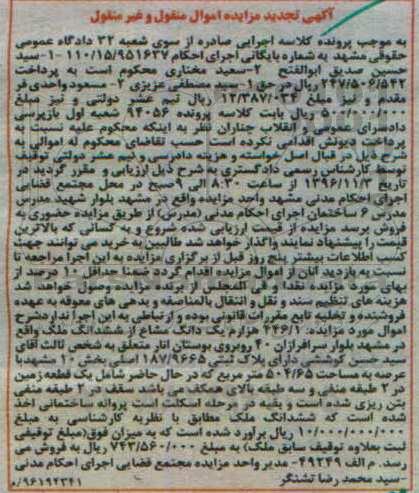 آگهی تجدید مزایده اموال منقول و غیر منقول
به موجب پرونده کلاسه اجرایی صادره از سوی شعبه ۳۲ دادگاه عمومی
حقوقی مشهد به شماره بایگانی اجرای احکام ۱۱۰/۱۵/۹۵۱۶۳۷ ۱-سید
حسین صدیق ابوالفتح ۲-سعید مختاری محکوم است به پرداخت
۲۴۷/۵۰۶/۵۴۲ ریال در حق ۱-سید مصطفی عزیزی ۲-مسعود واحدی فر
مقدم و نیز مبلغ ۱۲/۳۸۷/۰۳۴ ریال نیم عشر دولتی و نیز مبلغ
۵۰۰/۰۰۰/۰۰۰ ریال بابت کلاسه پرونده ۹۴۰۵۶ شعبه اول بازپرسی
دادسرای عمومی و انقلاب چناران نظر به اینکه محکوم علیه نسبت به
پرداخت دیونش اقدامی نکرده است حسب تقاضای محکوم له اموالی به
شرح ذیل در قبال اصل خواسته و هزینه دادرسی و نیم عشر دولتی توقیف
توسط کارشناس رسمی دادگستری به شرح ذیل ارزیابی و مقرر گردید در
تاریخ ۱۳۹۶/۱۱/۳ از ساعت ۸:۳۰ الی ۹صبح در محل مجتمع قضایی
اجرای احکام مدنی مشهد واحد مزایده واقع در مشهد بلوار شهید مدرس
مدرس ۶ ساختمان اجرای احکام مدنی (مدرس) از طریق مزایده حضوری به
فروش برسد مزایده از قیمت ارزیابی شده شروع و به کسانی که بالاترین
قیمت را پیشنهاد نمایند واگذار خواهد شد طالبین به خرید می توانند جهت
کسب اطلاعات بیشتر پنج روز قبل از برگزاری مزایده به این اجرا مراجعه تا
نسبت به بازدید آنان از اموال مزایده اقدام گردد ضمنا حداقل ۱۰ درصد از
بهای مورد مزایده نقدا و فی المجلس از برنده مزایده وصول خواهد شد
هزینه های تنظیم سند و نقل و انتقال بالمناصفه و بدهی های معوقه به عهده
فروشنده و تخلیه تابع مقررات قانونی بوده و ارتباطی به این اجرا ندارد شرح
اموال مورد مزایده: ۴۴۶/۱ هزارم یک دانگ مشاع از ششدانگ ملک واقع
در مشهد بلوار سرافرازان ۴۰ روبروی بوستان انار متعلق به شخص ثالث آقای
سید حسین کوششی دارای پلاک ثبتی ۱۸۷/۹۶۶۵ اصلی بخش ۱۰ مشهد با
عرصه به مساحت ۵۰۴/۶۵ متر مربع که در حال حاضر شامل یک قطعه زمین
در ۲ طبقه منفی و سه طبقه بالای همکف می باشد سقف در ۲ طبقه منفی
بتن ریزی شده است و بقیه در مرحله اسکلت است پروانه ساختمانی اخذ
شده است که ششدانگ ملک مطابق با نظریه کارشناسی به مبلغ
۱۰/۰۰۰/۰۰۰/۰۰۰ ریال برآورد شده است که به میزان فوق(مبلغ توقیفی
ثبت بعلاوه توقیف سابق ملک) به مبلغ ۷۴۳/۵۶۰/۰۰۰ ریال به فروش می
رسد. م الف ۴۹۲۴۹- مدیر واحد مزایده مجتمع قضایی اجرای احکام مدنی
-سید محمد رضا تشنگر ۹۶۱۹۲۳۴۱/ه